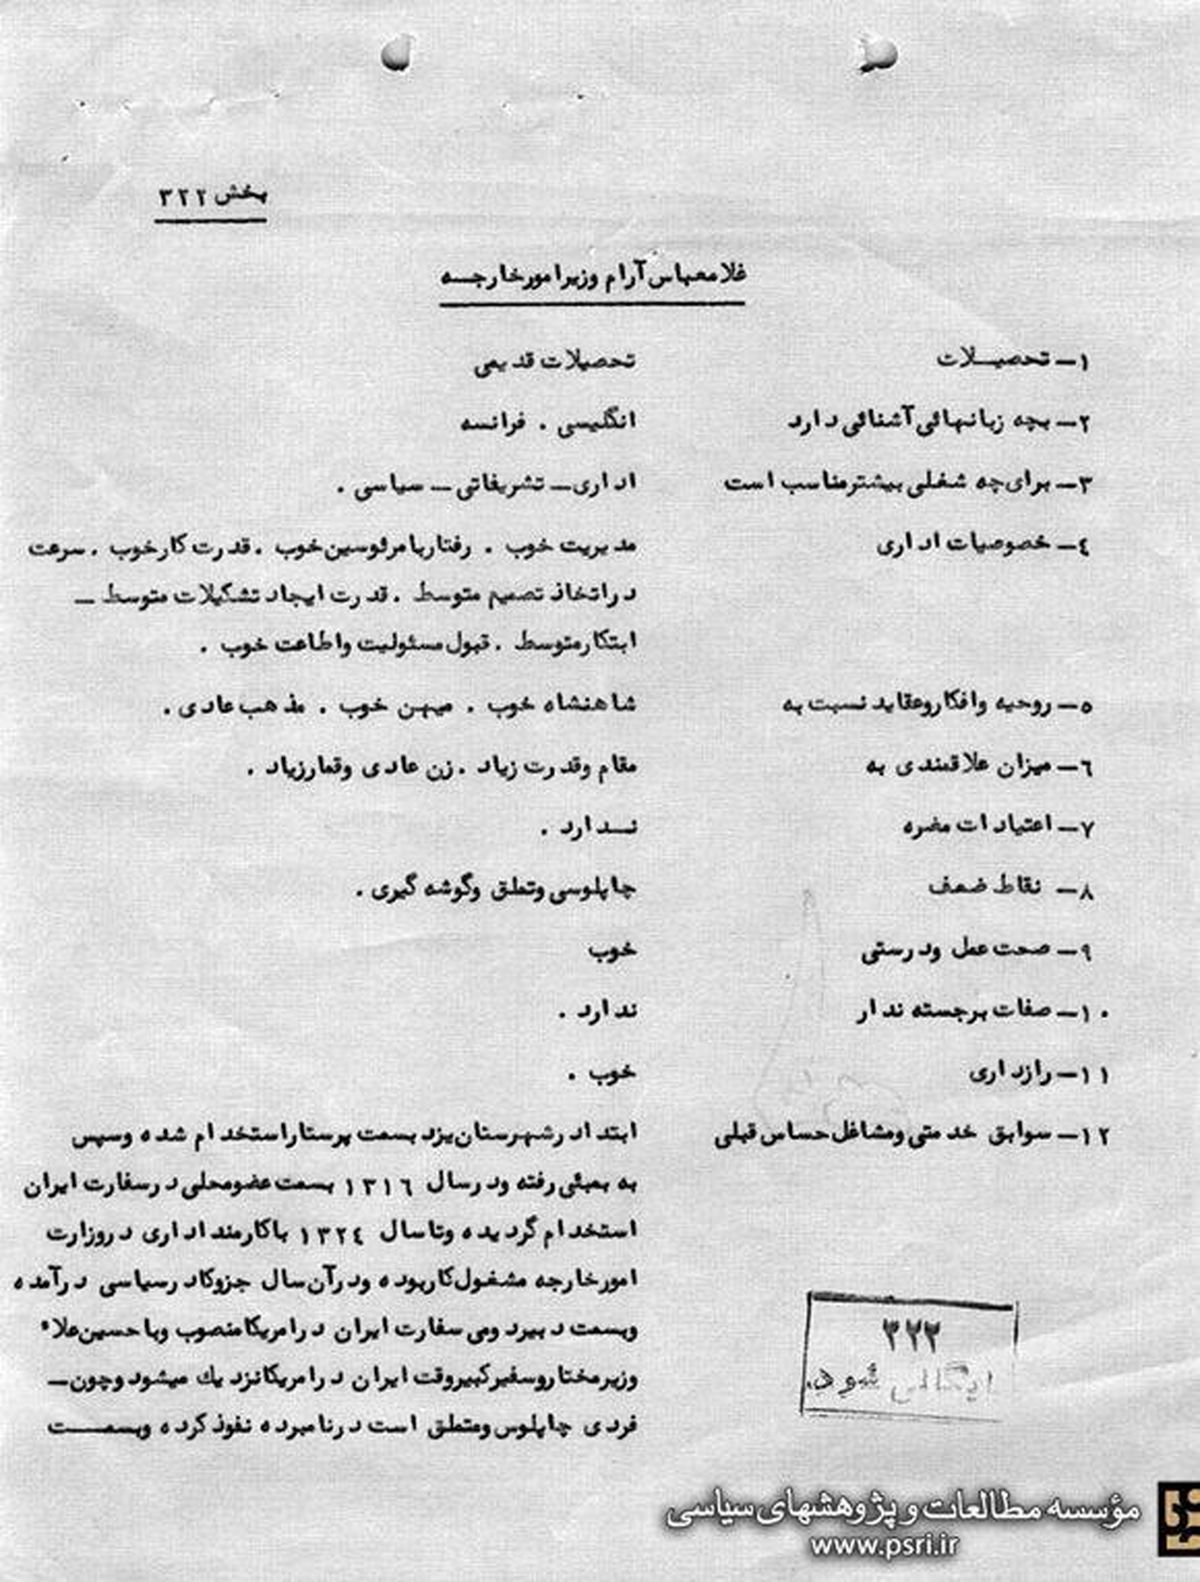 بخش ۳۲۲
غلامعباس آرام وزیر امور خارجـــه
۱ـ تحصیــلات تحصیلات قدیمی
۲ـ بچه زبانهائی آشنائی دارد انگلیسی . فرانسه
۳ـ برای چه شغلی بیشتر مناسب است اداری ـ تشریفاتی ـ سیاسی .
٤ـ خصوصیات اداری مدیریت خوب . رفتار با مرئوسین خوب . قدرت کار خوب . سرعت
در اتخاذ تصمیم متوسط . قدرت ایجاد تشکیلات متوسط ـ
ابتکار متوسط . قبول مسئولیت و اطاعت خوب .
۵ـ روحیه و افکار و عقاید نسبت به شاهنشاه خوب . میهن خوب . مذهب عادی .
٦ـ میزان علاقمندی به مقام و قدرت زیاد . زن عادی و قمار زیاد .
۷ـ اعتیادات مضره نــدارد .
۸ـ نقاط ضعف چاپلوسی و تملق و گوشه گیری .
۹ـ صحت عمل و درستی خوب
۱۰ـ صفات برجسته ندار ندارد .
۱۱ـ رازداری خوب .
۱۲ـ سوابق خدمتی و مشاغل حساس قبلی ابتدا در شهرستان یزد بسمت پرستار استخدام شده و سپس
به بمبئی رفته و در سال ۱۳۱٦ بسمت عضو محلی در سفارت ایران
استخدام گردیده و تا سال ۱۳۲٤ با کارمند اداری در وزارت
امور خارجه مشغول کار بوده و در آن سال جزو کادر سیاسی در آمده
و بسمت دبیر دومی سفارت ایران در امریکا منصوب و با حسین علاء
وزیر مختار و سفیر کبیر وقت ایران در امریکا نزدیك میشود و چون ـ
فردی چاپلوس و متملق است در نامبرده نفوذ کرده و بسمـــت
۳۲۲
بایگانی شود.
مؤسسه مطالعات و پژوهشهای سیاسی
www.psri.ir